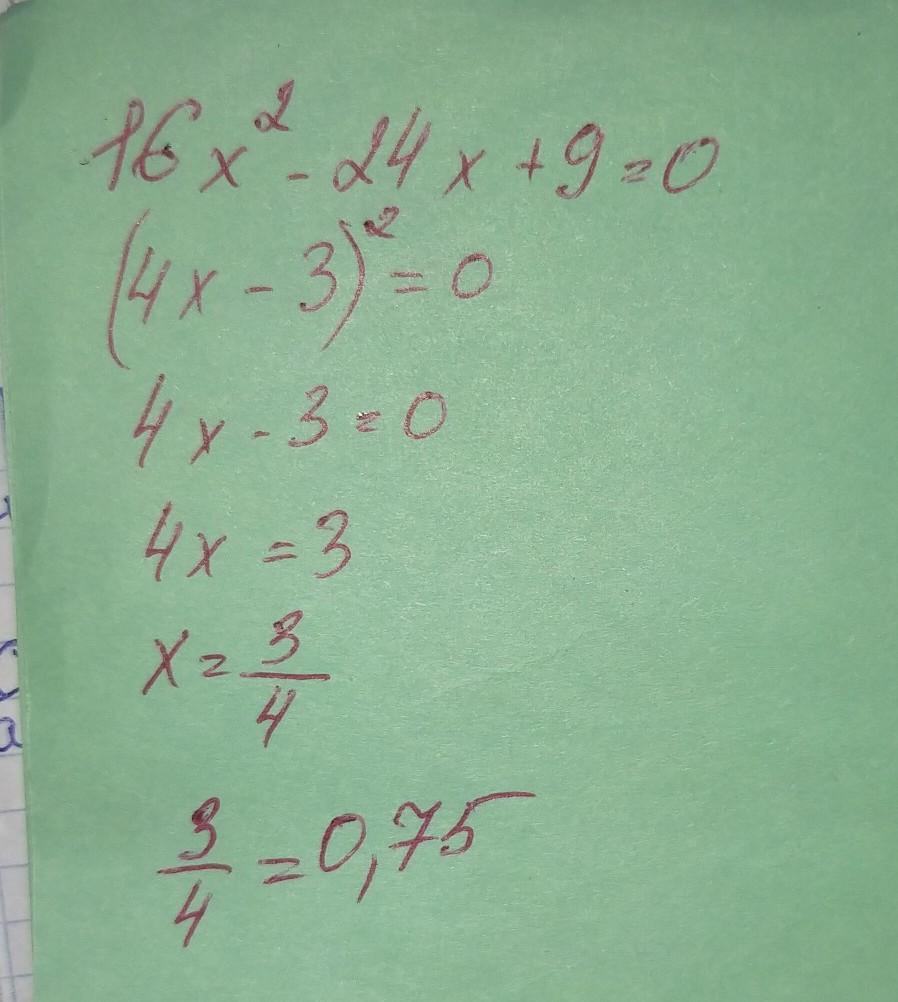 16x² - 24x + 9 = 0
(4x - 3)² = 0
4x - 3 = 0
4x = 3
x = 3/4
3/4 = 0,75